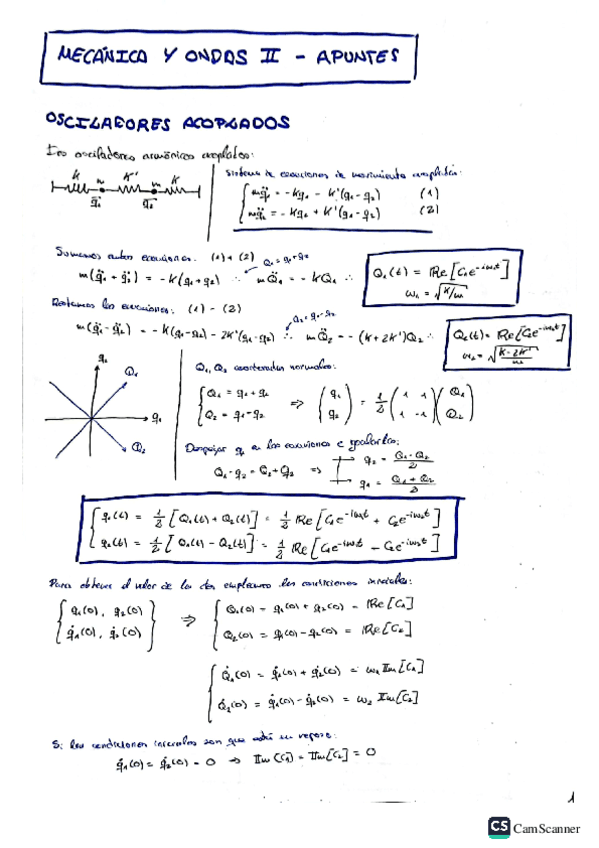 MECÁNICA Y ONDAS II - APUNTES
OSCILADORES ACOPLADOS
Dos osciladores armónicos acoplados:
K m K' m K
q₁ q₂
Sistema de ecuaciones de movimiento acopladas:
mq̈₁ = -Kq₁ - K'(q₁-q₂) (1)
mq̈₂ = -Kq₂ + K'(q₁-q₂) (2)
Sumamos ambas ecuaciones: (1)+(2) Q₁ = q₁+q₂
m(q̈₁ + q̈₂) = -K(q₁+q₂) ∴ mQ̈₁ = -KQ₁ ∴
Q₁(t) = Re[C₁e^{-iω₁t}]
ω₁ = √(K/m)
Restamos las ecuaciones: (1) - (2) Q₂ = q₁-q₂
m(q̈₁-q̈₂) = -K(q₁-q₂) - 2K'(q₁-q₂) ∴ mQ̈₂ = -(K+2K')Q₂ ∴
Q₂(t) = Re[C₂e^{-iω₂t}]
ω₂ = √((K·2K')/m)
q₂ Q₁
q₁
Q₂
Q₁, Q₂ coordenadas normales:
Q₁ = q₁ + q₂
Q₂ = q₁ - q₂
⇒ (q₁ q₂) = 1/2 (1 1 1 -1) (Q₁ Q₂)
Despejar q₁ en las ecuaciones e igualarlas:
Q₁ - q₂ = Q₂ + q₂ ⇒ q₂ = (Q₁-Q₂)/2
q₁ = (Q₁+Q₂)/2
q₁(t) = 1/2 [Q₁(t) + Q₂(t)] = 1/2 Re[C₁e^{-iω₁t} + C₂e^{-iω₂t}]
q₂(t) = 1/2 [Q₁(t) - Q₂(t)] = 1/2 Re[C₁e^{-iω₁t} - C₂e^{-iω₂t}]
Para obtener el valor de las ctes empleamos las condiciones iniciales:
{q₁(0), q₂(0)
q̇₁(0), q̇₂(0)} ⇒
Q₁(0) = q₁(0) + q₂(0) = Re[C₁]
Q₂(0) = q₁(0) - q₂(0) = Re[C₂]
Q̇₁(0) = q̇₁(0) + q̇₂(0) = ω₁ Im[C₁]
Q̇₂(0) = q̇₁(0) - q̇₂(0) = ω₂ Im[C₂]
Si las condiciones iniciales son que está en reposo:
q̇₁(0) = q̇₂(0) = 0 ⇒ Im[C₁] = Im[C₂] = 0
1
CS CamScanner